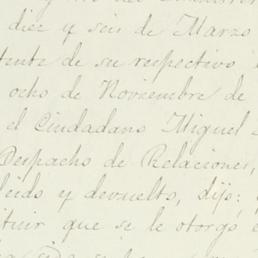 diez y seis de Marzo
tente de su respectivo
ocho de Noviembre de
el Ciudadano Miguel
Despacho de Relaciones,
leido y devuelto, dijo:
tituir que se le otorgó